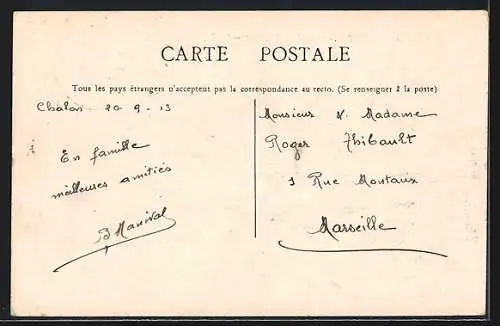 CARTE POSTALE
Tous les pays étrangers n'acceptent pas la correspondance au recto. (Se renseigner à la poste)
Chalon 20 - 9 - 13
En famille
meilleures amitiés
Manival
Monsieur & Madame
Roger Thibault
1 Rue Montaux
Marseille